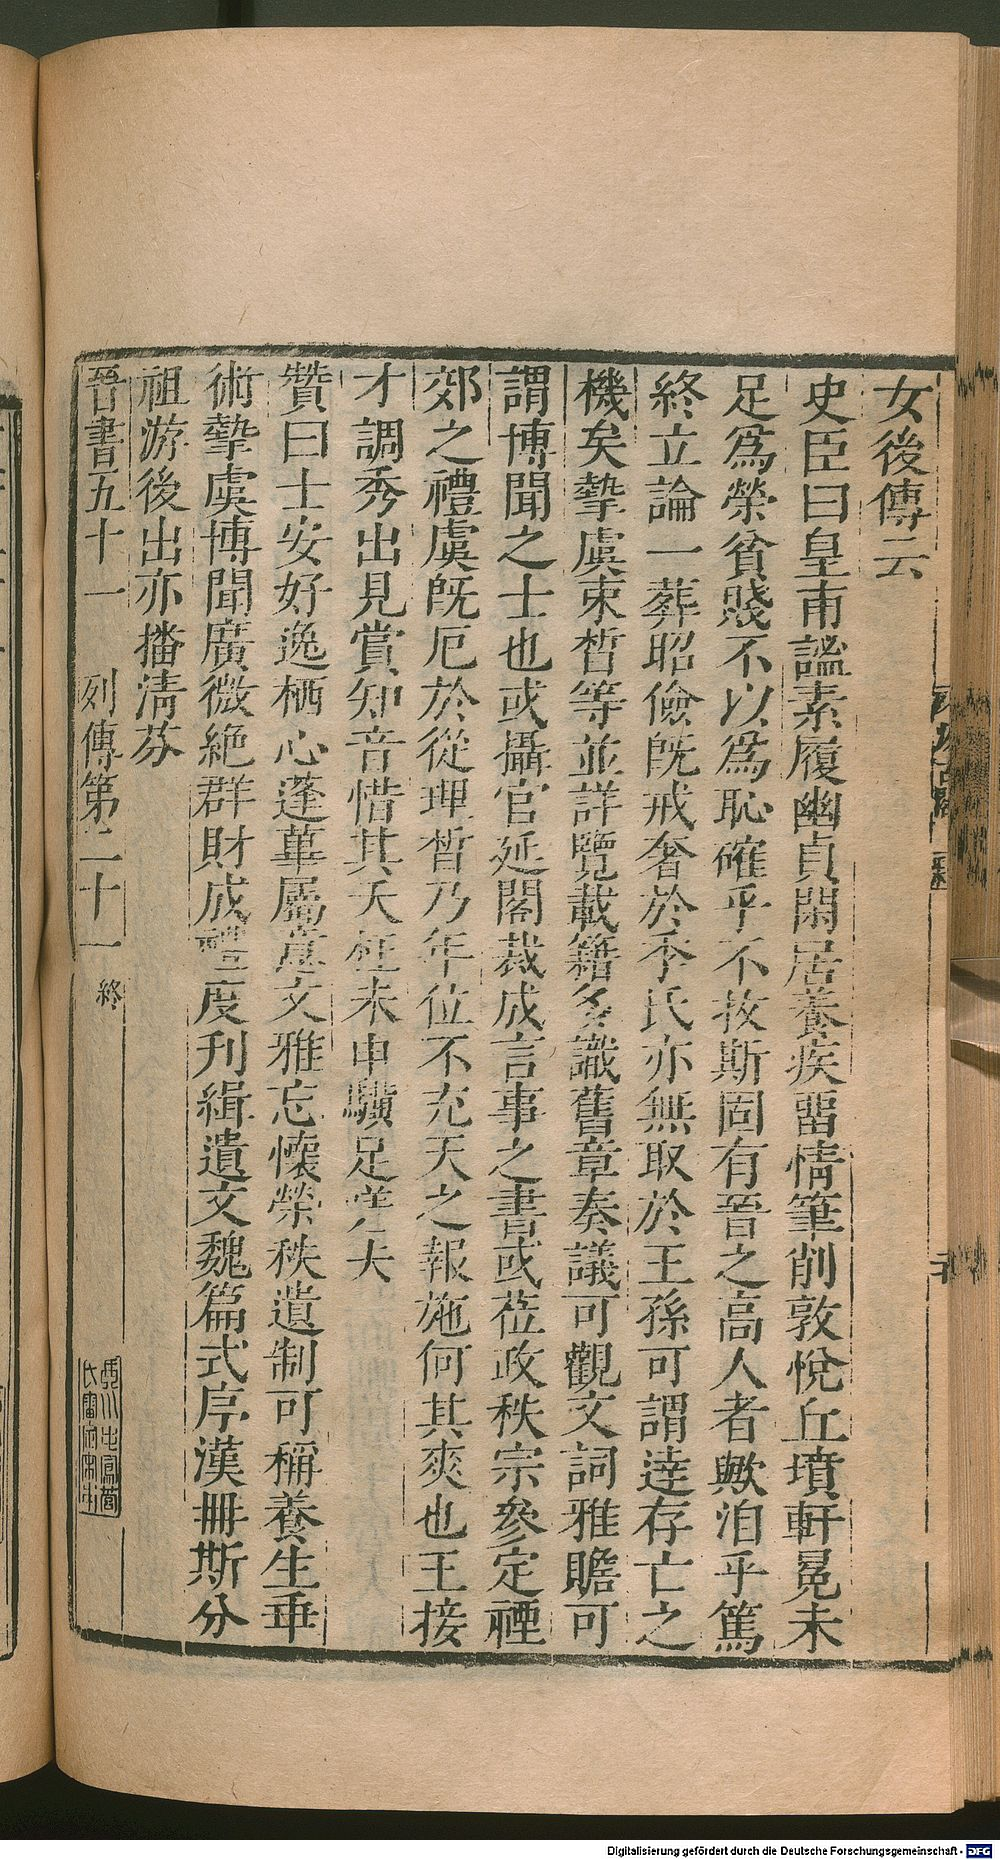 女後傳云
史臣曰皇甫謐素履幽貞閑居養疾畱情筆削敦悅丘墳軒冕未
足爲榮貧賤不以爲恥確乎不拔斯固有晉之高人者歟洎乎篤
終立論一葬昭儉既戒奢於季氏亦無取於王孫可謂達存亡之
機矣摯虞束晳等並詳覽載籍多識舊章奏議可觀文詞雅贍可
謂博聞之士也或攝官延閣裁成言事之書或莅政秩宗參定禋
郊之禮虞既厄於從理晳乃年位不充天之報施何其爽也王接
才調秀出見賞知音惜其夭枉未申驥足嗟夫
贊曰士安好逸栖心蓬蓽屬意文雅忘懷榮秩遺制可稱養生垂
術摯虞博聞廣微絶群財成禮度刊緝遺文魏篇式序漢冊斯分
祖游後出亦播清芬
晉書五十一 列傳第二十一 終
Digitalisierung gefördert durch die Deutsche Forschungsgemeinschaft - DFG